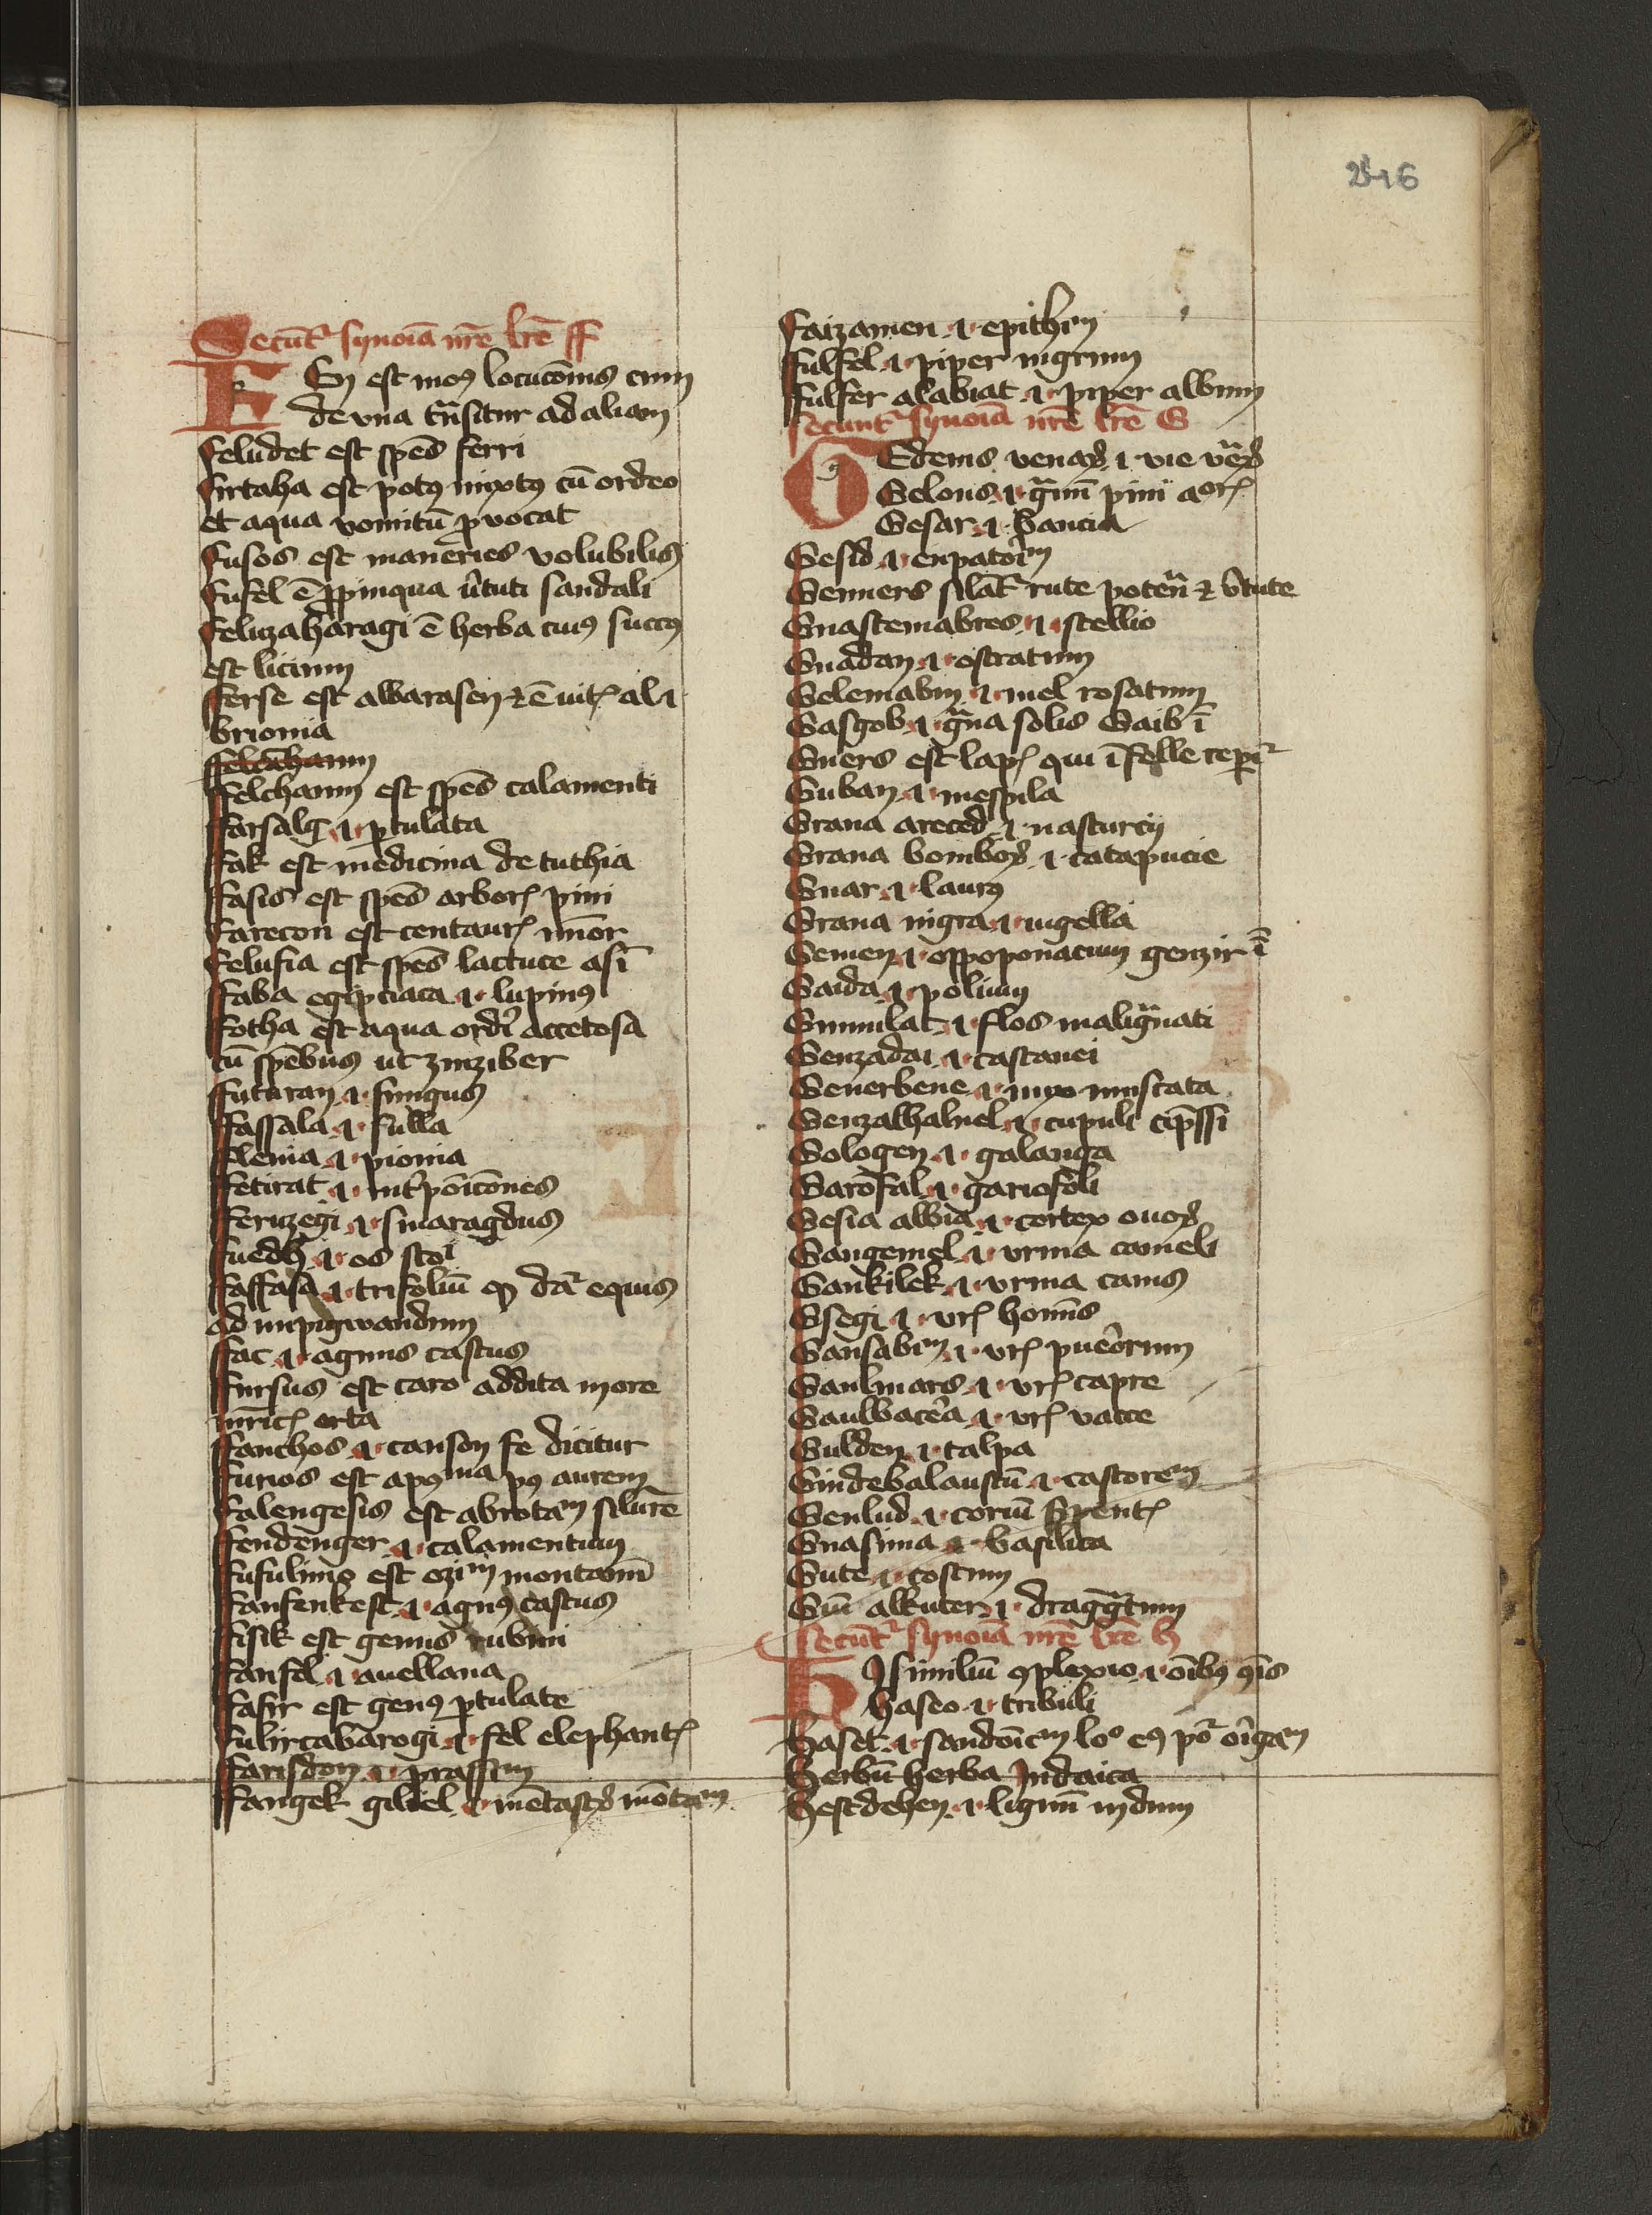 246
Secūtr synoīa nrē lrē ff
En est mo⁹ locucōnis cum
de vna trāsitur ad aliam
feludet est spēs ferri
firtaha est pot⁹ mixt⁹ cū ordeo
et aqua vomitū prouocat
fusos est maneries volubilis
fufel ē propinqua v̄tuti sandali
felizaharagi ē herba cui⁹ succ⁹
est licium
fferse est albarasen ⁊ ē uit al
brionia
ffelchanm
ffelchanm est spēs calamenti
ffarsalg .i. ptulata
ffak est medicina de tuthia
ffasis est spēs arbor pini
ffarecon est centaur mīor
ffelufia est spēs lactuce asī
ffaba egipciaca .i. lupin⁹
ffotha est aqua ordī accetosa
cū spēbus ut zinziber
ffuturan .i. fungus
ffassala .i. fulla
fflenia .i. pionia
ffetirat .i. int̄poīcōnes
fferuzegi .i. smaragdus
ffuedh .i. os
ffaffasa .i. trifoliū qd dār equis
ad inpigwandum
ffac .i. agnus castus
ffursus est caro addita in ore
mrīc orta
ffanchos .i. canson fe dicitur
ffurios est apoma po⁹ aurem
ffalengesis est abrotam silurē
ffendenger .i. calamentum
ffufulimg est ozim montanū
ffanfenkest .i. agn⁹ castus
ffisik est genus rubini
ffanfel .i. auellana
ffasir est gen⁹ ptulate
ffulircabarogi .i. fel elephant
ffarisdon .i. prassim
ffangek giliel .i. mētast mōtam
ffaizamen .i. epithim
ffulfel .i. piper nigrum
ffulfer alabiat .i. piper album
Secunt synoīa nrē lrē G
GEdems venar .i. vie
Gelous .i. grām pini aor
Gesar .i. bancia
Gesid .i. eupatorim
Gemers silāt rute ⁊ v̄tute
Gnastemabres .i. stellio
Guadan .i. ostratum
Gelemabin .i. mel rosatum
Gasgob .i. grāna solis Gaib ī
Guers est lap qui ī felle repīr
Guban .i. mespila
Grana areced .i. nasturcij
Grana bombor .i. catapucie
Guar .i. laur⁹
Grana nigra .i. nigella
Gemen .i. oppoponacum genzir ī
Gaida .i. polium
Gunnilat .i. flos maligrānati
Genzadai .i. castanei
Geuerbene .i. nux muscata
Genzalhalnel .i. cupuli cipssi
Gologen .i. galanga
Garofal .i. gariofoli
Gesia albia .i. cortex ouor
Gangemel .i. vrina cameli
Gankilek .i. vrina canis
Gsegi .i. vr hominis
Gansabin .i. vr puerorum
Ganlmars .i. vr capre
Gaulbacera .i. vr vacce
Gulden .i. talpa
Gindebalaustū .i. castorem
Genlud .i. coriū Spent
Gnasima .i. basilica
Gute .i. costum
Giū alkuter .i. draggātum
Secūt synoīa nrē lrē h
HIsimiliū ꝯplexio .i. oībus
haseo .i. tribuli
Haset .i. sandoīcm lo⁰ e⁹ pōr orīgam
Herbū herba Indaica
Hestdehen .i. lignū indum